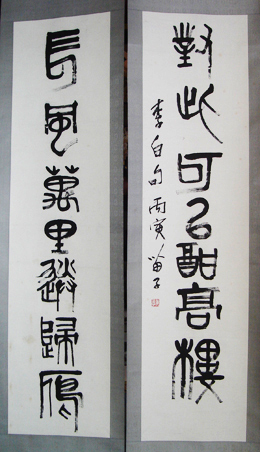 對此可以酣高樓
李白句 丙寅
長風萬里送歸鴈